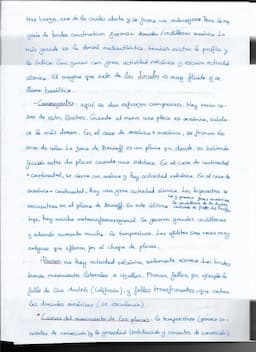 tres brazos, uno de los cuales aborta y se forma un aulacógeno. Pero la ma-
yoría de bordes constructivos forman dorsales/cordilleras oceánicas. La
más grande es la dorsal medioatlántica, también existen la pacífica y
la índica. Son zonas con gran actividad volcánica y escasa actividad
sísmica. El magma que sale de las dorsales es muy fluido y se
llama basáltico.
- Convergentes: aquí se dan esfuerzos compresivos. Hay varios ca-
sos de estos límites. Cuando al menos una placa es oceánica, subdu-
ce la más densa. En el caso de oceánica + oceánica, se forman los
arcos de islas. La zona de Benioff es un plano por donde se
cuando una subduce. En el caso de continental
+ continental, se cierra un océano y hay actividad volcánica. En el caso de
oceánica + continental, hay una gran actividad sísmica. Los hipocentros se
encuentran en el plano de Benioff. En este último
y procesos
la cordillera de los Andes,
cinturón de fuego del Pacífico
tipo, hay mucho metamorfismo regional. Se generan grandes cordilleras
y además aumenta mucho la temperatura. Las ofiolitas son rocas muy
antiguas que afloran por el choque de placas.
- Pasivos: no hay actividad volcánica, solamente sísmica. Los bordes
tienen movimientos laterales o cizallas. Forman fallas, por ejemplo la
falla de San Andrés (California), y fallas transformantes que cortan
las dorsales oceánicas (se escalonan).
* Causas del movimiento de las placas: la temperatura (provoca co-
rrientes de convección) y la gravedad (subducción y corrientes de convección).